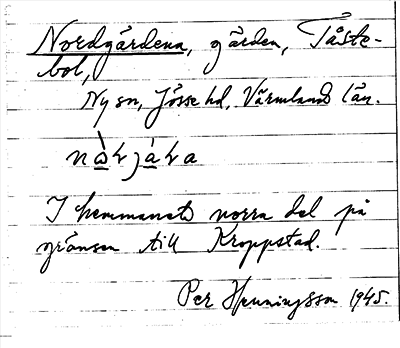 Nordgårdena, gården, Tåste-
bol,
Ny sn, Jösse hd, Värmlands län.
I hemmanets norra del på
gränsen till Kroppstad.
Per Henningsson 1945.